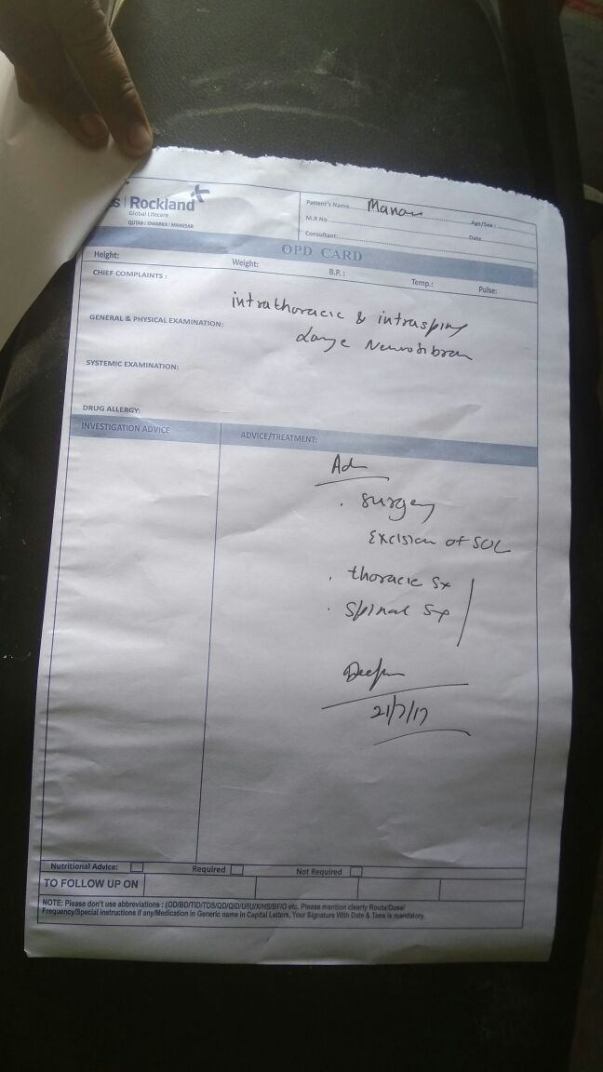 s | Rockland
Global Lifecare
QUTAB | DWARKA | MANESAR
Patient's Name Manav Age/Sex:
M.R No
Consultant: Date
OPD CARD
Height: Weight: B.P.: Temp.: Pulse:
CHIEF COMPLAINTS :
intrathoracic & intraspinal
GENERAL & PHYSICAL EXAMINATION:
Large Neurofibroma
SYSTEMIC EXAMINATION:
DRUG ALLERGY:
INVESTIGATION ADVICE ADVICE/TREATMENT:
Adv
. surgery
Excision of SOL
. thoracic Sx
. Spinal Sx
21/7/17
Nutritional Advice: Required Not Required
TO FOLLOW UP ON
NOTE: Please don't use abbreviations : (OD/BD/TID/TDS/QD/QID/U/IU/X/HS/SF/O etc. Please mention clearly Route/Dose/
Frequency/Special instructions if any/Medication in Generic name in Capital Letters, Your Signature With Date & Time is mandatory.